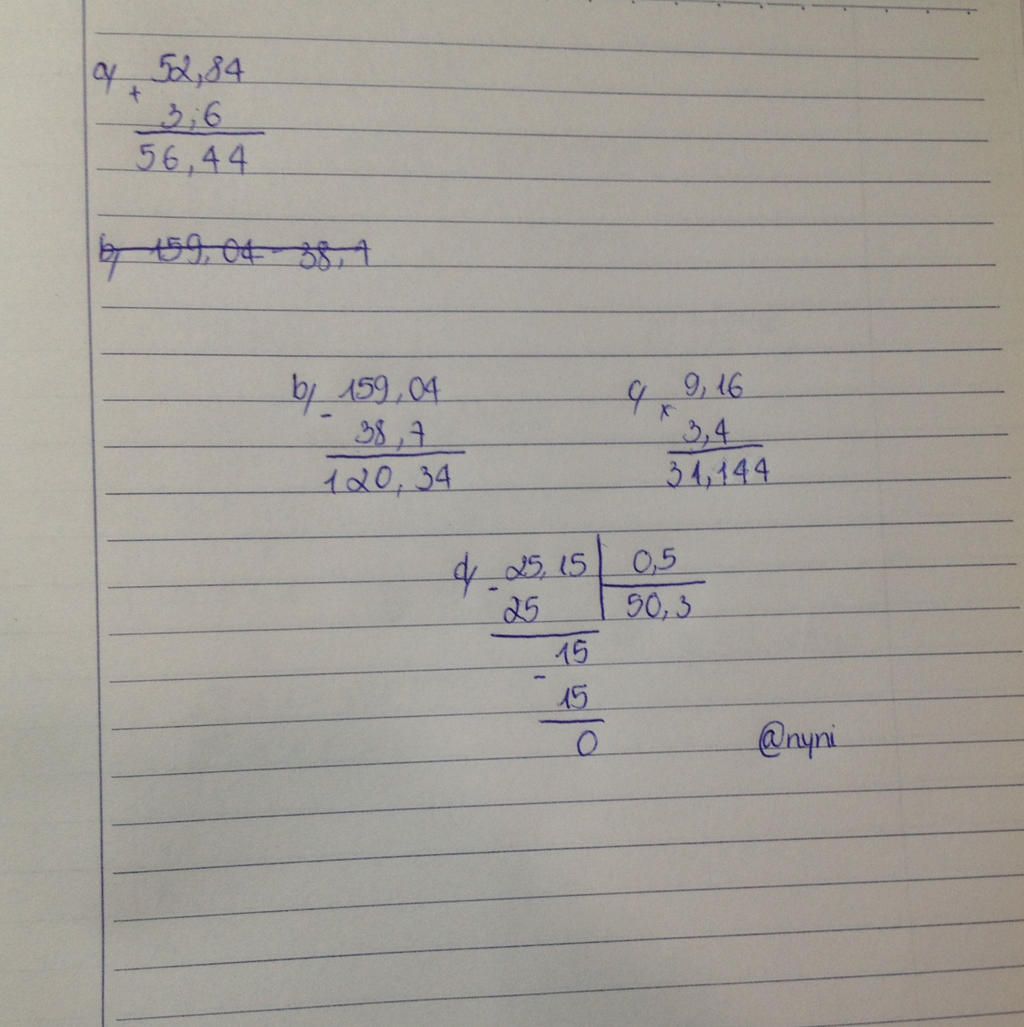 a) 52,84
+
3,6
56,44
b) 159,04 - 38,7
b) 159,04
-
38,7
120,34
c) 9,16
x
3,4
31,144
d) 25,15 | 0,5
-
25 50,3
15
-
15
0
@nyni